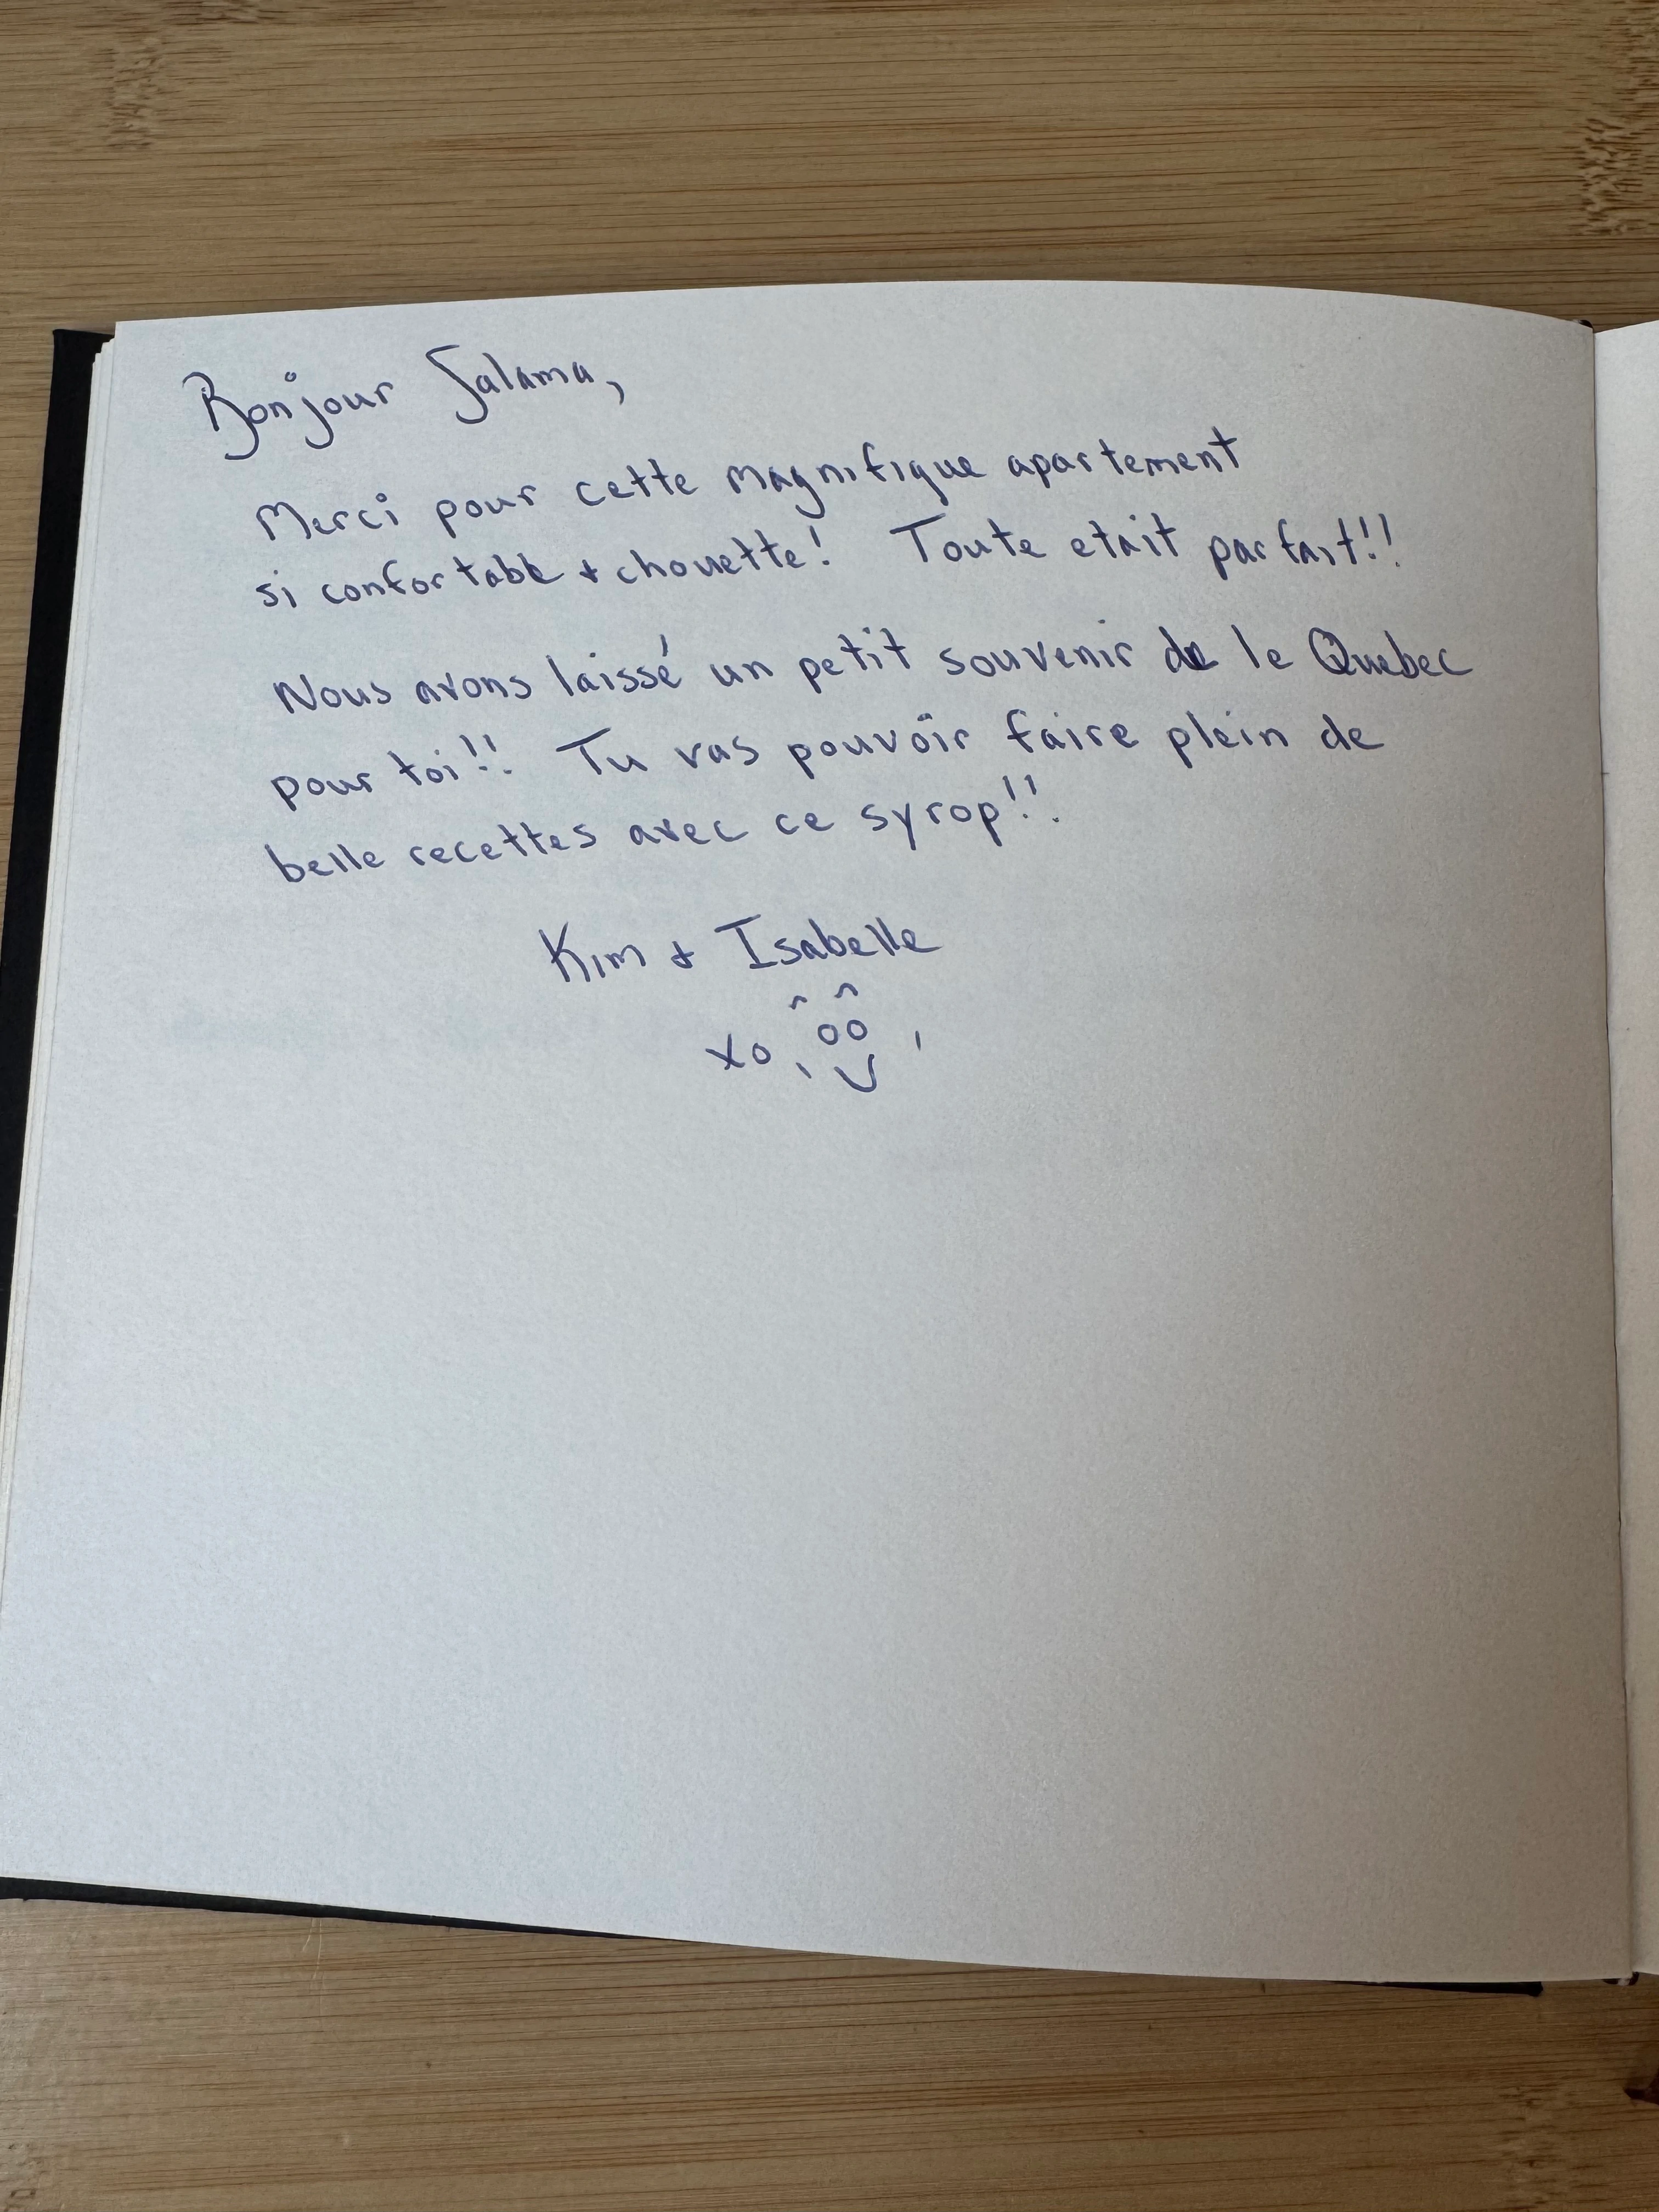 Bonjour Salama,
Merci pour cette magnifique apartement
si confortable + chouette! Toute etait parfait!!
Nous avons laissé un petit souvenir de le Quebec
pour toi!! Tu vas pouvoir faire plein de
belle recettes avec ce syrop!!
Kim + Isabelle
xo